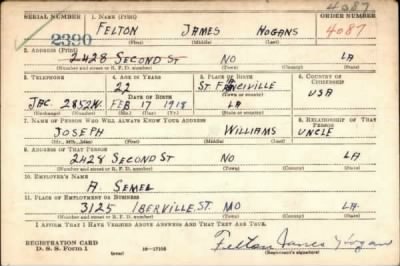 4087
SERIAL NUMBER 1. NAME (Print) ORDER NUMBER
2390 FELTON JAMES HOGANS 4087
(First) (Middle) (Last)
2. ADDRESS (Print)
2428 SECOND ST NO LA
(Number and street or R. F. D. number) (Town) (County) (State)
3. TELEPHONE 4. AGE IN YEARS 5. PLACE OF BIRTH 6. COUNTRY OF CITIZENSHIP
22 ST FRANCIVILLE
DATE OF BIRTH (Town or county) USA
JAC. 2852W. FEB 17 1918 LA
(Mo.) (Day) (Yr.) (State or country)
7. NAME OF PERSON WHO WILL ALWAYS KNOW YOUR ADDRESS 8. RELATIONSHIP OF THAT PERSON
JOSEPH WILLIAMS UNCLE
(Mr., Mrs., Miss) (First) (Middle) (Last)
9. ADDRESS OF THAT PERSON
2428 SECOND ST NO LA
(Number and street or R. F. D. number) (Town) (County) (State)
10. EMPLOYER'S NAME
A. SEMEL
11. PLACE OF EMPLOYMENT OR BUSINESS
3125 IBERVILLE. ST. NO LA.
(Number and street or R. F. D. number) (Town) (County) (State)
I AFFIRM THAT I HAVE VERIFIED ABOVE ANSWERS AND THAT THEY ARE TRUE.
REGISTRATION CARD
D. S. S. Form 1 (over) 16—17105 Felton James Hogans
(Registrant's signature)